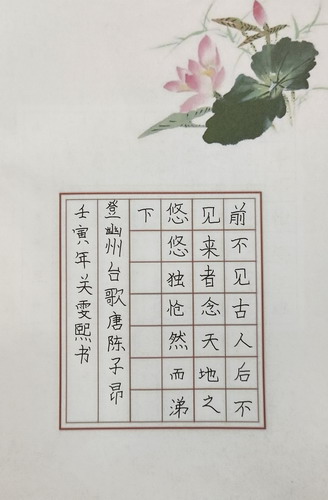 前不见古人后不
见来者念天地之
悠悠独怆然而涕
下
登幽州台歌唐陈子昂
壬寅年关雯熙书